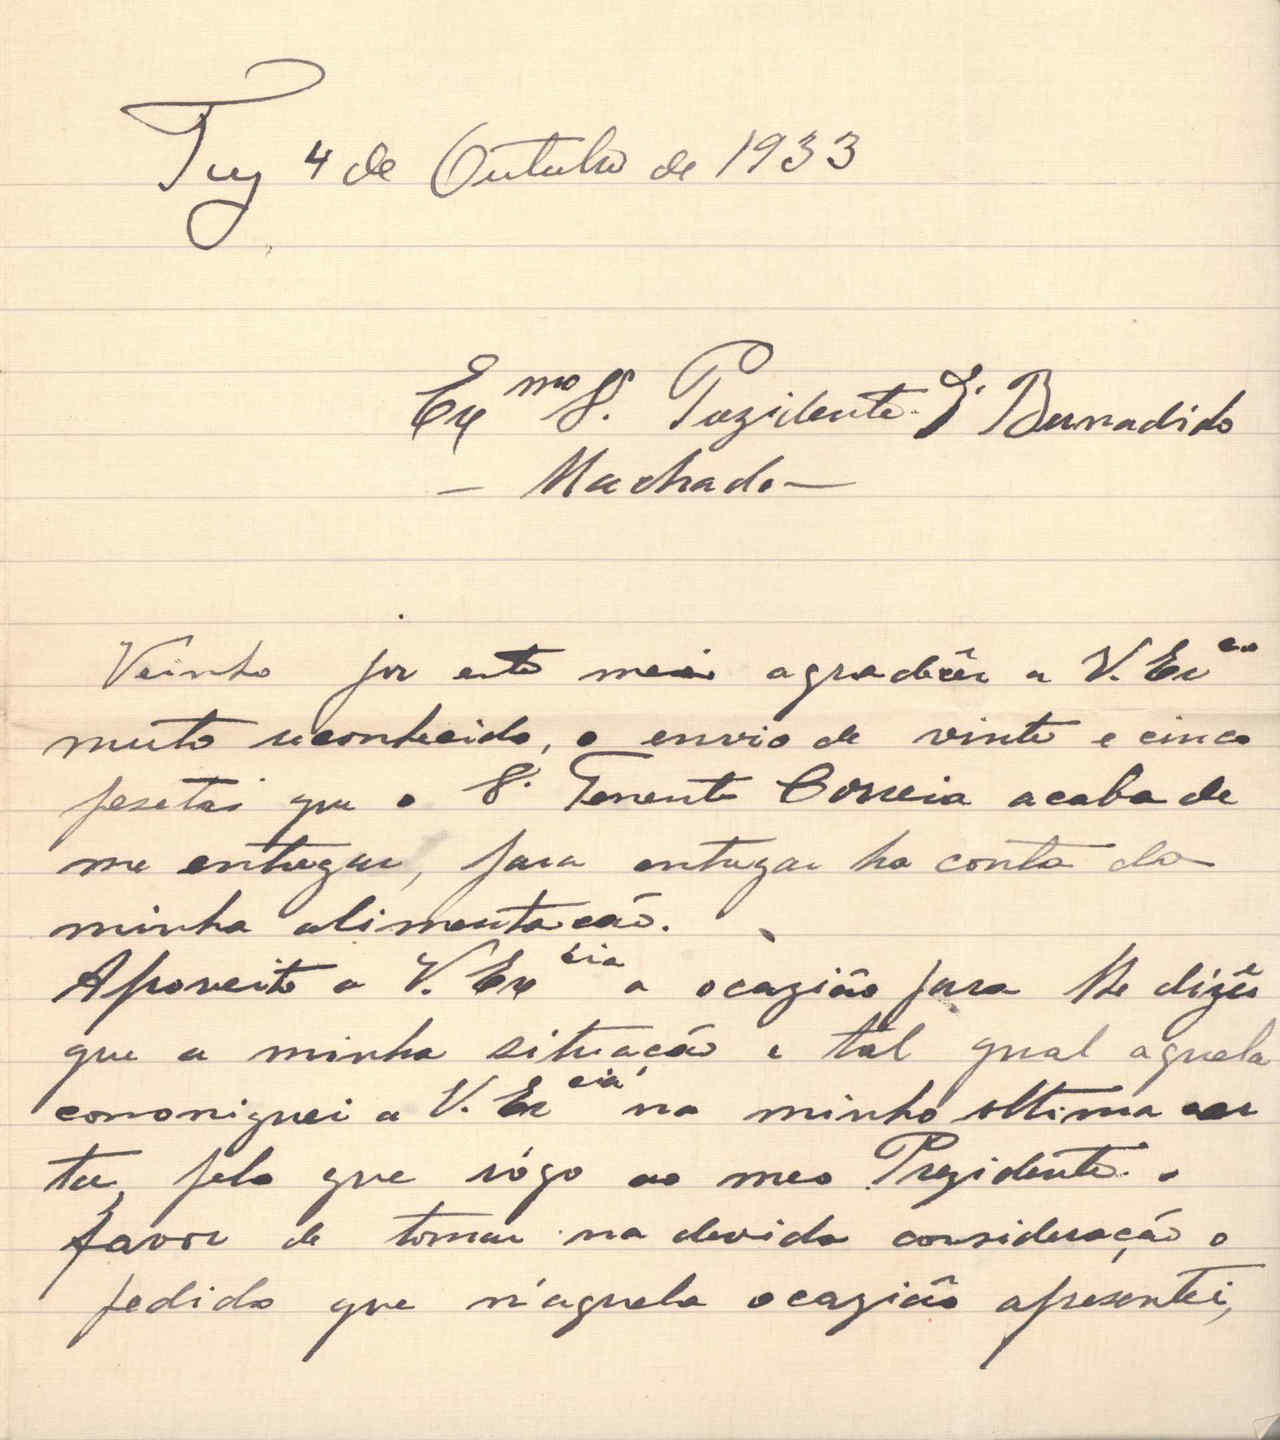 Tuy 4 de Outubro de 1933
Ex mo S. Prezidente Dr Bernadido
— Machado —
Veinho por este meio agradecêr a V. Ex cia
muito reconhecido, o envio de vinte e cinco
pesetas que o Sr. Tenente Correia acaba de
me entregar, para entregar ha conta da
minha alimentacão.
Aproveito a V. Ex cia a ocazião para lhe dizêr
que a minha situacão e tal qual aquela
comoniquei a V. Ex cia na minha oltima car
ta, pelo que rógo ao meo Prezidente o
favor de tomar na devida consideração o
pedido que n'aquela ocazião apresentei,